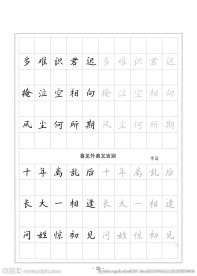 多难识君迟多难识君迟
掩泣空相向掩泣空相向
风尘何所期风尘何所期
喜见外弟又言别 李益
十年离乱后十年离乱后
长大一相逢长大一相逢
问姓惊初见问姓惊初见